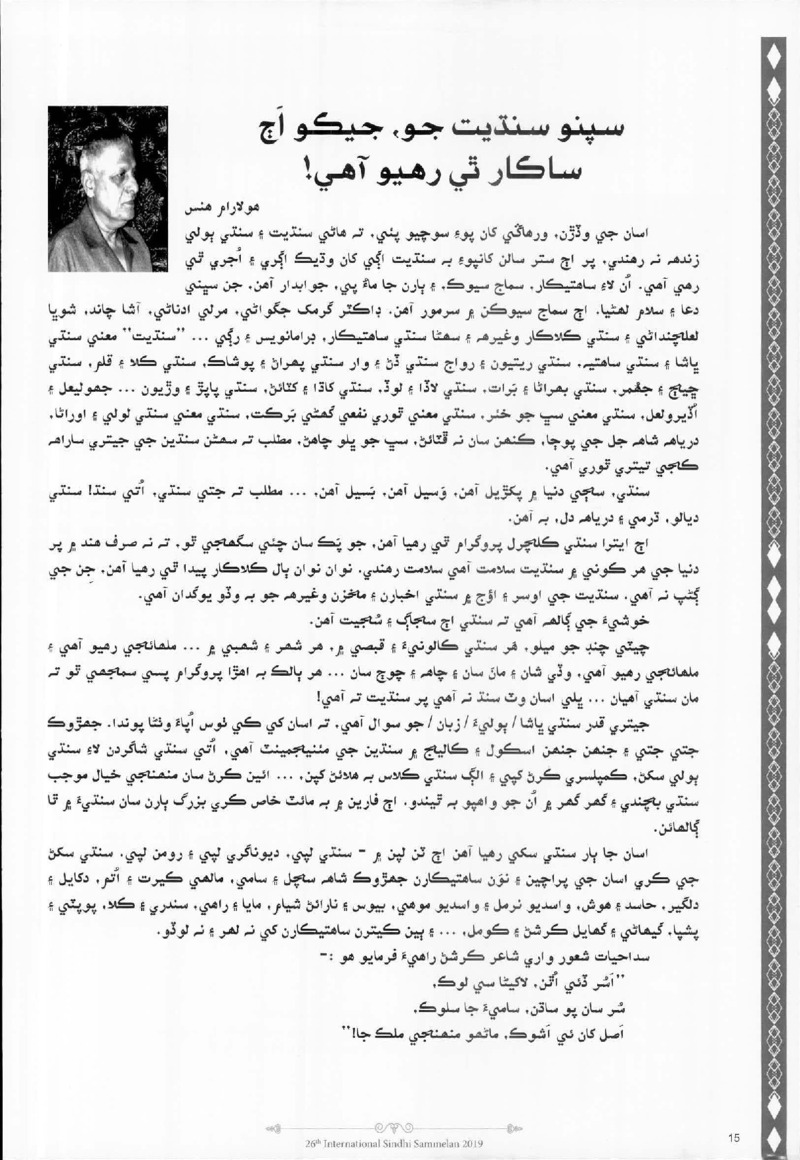 سپنو سنڌيت جو، جيڪو اَڄ
ساڪار ٿي رهيو آهي!
هولارام هنس
اسان جي وڏڙن، ورهاڱي کان پوءِ سوچيو پئي، ته هاڻي سنڌيت ۽ سنڌي ٻولي
زندهه نه رهندي، پر اڄ ستر سالن کانپوءِ به سنڌيت اڳي کان وڌيڪ اڳري ۽ اُجري ٿي
رهي آهي. اُن لاءِ ساهتيڪار، سماج سيوڪ، ۽ ٻارن جا ماءُ پي، جوابدار آهن، جن سڀني
دعا ۽ سلام لهڻيا. اڄ سماج سيوڪن ۾ سرمور آهن. ڊاڪٽر گرمک جگواڻي، مرلي ادناڻي، آشا چاند، شوڀا
لعلچنداڻي ۽ سنڌي ڪلاڪار وغيرهه ۽ سڀئا سنڌي ساهتيڪار، ڊرامانويس ۽ راڳي ... "سنڌيت" معني سنڌي
ڀاشا ۽ سنڌي ساهتيه، سنڌي ريتيون ۽ رواج سنڌي ڏڻ ۽ وار سنڌي پهراڻ ۽ پوشاڪ، سنڌي ڪلا ۽ قلم، سنڌي
ڇيڄ ۽ جهُمر، سنڌي بهراڻا ۽ بَرات، سنڌي لاڏا ۽ لوڏ، سنڌي کاڌا ۽ کٽائڻ، سنڌي پاپڙ ۽ وڙيون ... جهوليلعل ۽
اُڏيرولعل، سنڌي معني سڀ جو خئر، سنڌي معني ٿوري نفعي گهڻي بَرڪت، سنڌي معني سنڌي لولي ۽ اوراڻا،
درياهه شاهه جل جي پوڄا، ڪنهن سان نه ڦٽائڻ، سڀ جو ڀلو چاهڻ، مطلب ته سڀڻن سنڌين جي جيتري ساراهه
ڪجي تيتري ٿوري آهي.
سنڌي، سڄي دنيا ۾ پکڙيل آهن، وَسيل آهن، بَسيل آهن، ... مطلب ته جتي سنڌي، اُتي سنڌ! سنڌي
ديالو، ڌرمي ۽ درياهه دل، به آهن.
اڄ ايترا سنڌي ڪلچرل پروگرام ٿي رهيا آهن، جو پَڪ سان چئي سگهجي ٿو، ته نه صرف هند ۾ پر
دنيا جي هر ڪوني ۾ سنڌيت سلامت آهي سلامت رهندي. نوان نوان ٻال ڪلاڪار پيدا ٿي رهيا آهن، جن جي
ڳڻپ نه آهي. سنڌيت جي اوسر ۽ اؤج ۾ سنڌي اخبارن ۽ مخزن وغيرهه جو به وڏو يوگدان آهي.
خوشيءَ جي ڳالهه آهي ته سنڌي اڄ سجاڳ ۽ سُچيت آهن.
چيٽي چنڊ جو ميلو، هَر سنڌي ڪالونيءَ ۽ قبصي ۾، هر شهر ۽ شعبي ۾ ... ملهائجي رهيو آهي ۽
ملهائجي رهيو آهي، وڏي شان ۽ مانَ سان ۽ چاهه ۽ چوڄ سان ... هر ٻالڪ به اهڙا پروگرام پسي سمجهي ٿو ته
مان سنڌي آهيان ... ڀلي اسان وٽ سنڌ نه آهي پر سنڌيت ته آهي!
جيتري قدر سنڌي ڀاشا / ٻوليءَ / زبان / جو سوال آهي، ته اسان کي ڪي ٺوس اُپاءَ وٺڻا پوندا. جهڙوڪ
جتي جتي ۽ جنهن جنهن اسڪول ۽ ڪاليج ۾ سنڌين جي مئنيجمينٽ آهي، اُتي سنڌي شاگردن لاءِ سنڌي
ٻولي سکڻ، ڪمپلسري ڪرڻ کپي ۽ الڳ سنڌي ڪلاس به هلائڻ کپن، ... ائين ڪرڻ سان منهنجي خيال موجب
سنڌي بچندي ۽ گهر گهر ۾ اُن جو واهپو به ٿيندو. اڄ فارين ۾ به مائٽ خاص ڪري بزرگ ٻارن سان سنڌيءَ ۾ ٿا
ڳالهائن.
اسان جا ٻار سنڌي سکي رهيا آهن اڄ ٽن لپن ۾ - سنڌي لپي، ديوناگري لپي ۽ رومن لپي، سنڌي سکڻ
جي ڪري اسان جي پراچين ۽ نوَن ساهتيڪارن جهڙوڪ شاهه سچل ۽ سامي، مالهي ڪيرت ۽ اُتم، دکايل ۽
دلگير، حاسد ۽ هوش، واسديو نرمل ۽ واسديو موهي، بيوس ۽ نارائڻ شيام، مايا ۽ راهي، سندري ۽ ڪلا، پوپٽي ۽
پشپا، گيهاڻي ۽ گهايل ڪرشن ۽ ڪومل، ... ۽ ٻين ڪيترن ساهتيڪارن کي نه لهر ۽ نه لوڏو.
سداحيات شعور واري شاعر ڪرشن راهيءَ فرمايو هو :-
"اَسُر ڏئي اُٿن، لاکيڻا سي لوڪ،
سُر سان پو ساڌن، ساميءَ جا سلوڪ،
اَصل کان ئي آشوڪ، ماڻهو منهنجي ملڪ جا!"
26th International Sindhi Sammelan 2019
15